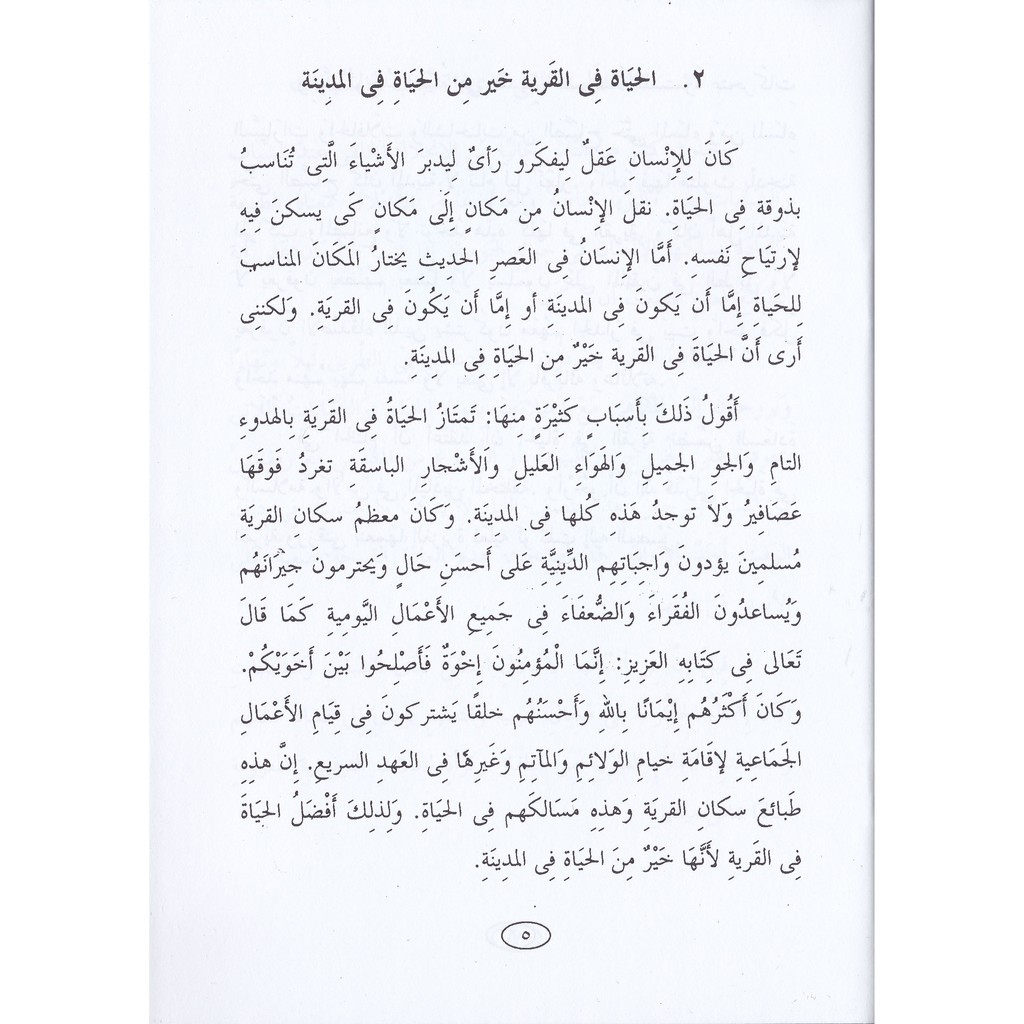 ٢. الحَيَاة فِى القَرية خَير مِن الحَيَاةِ فِى المدِينَة
كَانَ لِلإِنْسانِ عَقلٌ لِيفكَرو رَأىٌ لِيدبرَ الأَشْياءَ الَّتِى تُنَاسبُ
بذوقة فِى الحَيَاة. نقلَ الإنْسانُ مِن مَكانٍ إلَى مَكانٍ كَى يسكنَ فِيهِ
لإرتيَاحِ نَفسهِ. أَمَّا الإِنسَانُ فِى العَصرِ الحَدِيثِ يختارُ المَكَانَ المناسبَ
لِلحَياةِ إِمَّا أَن يَكونَ فِى المدينَةِ أو إمَّا أَن يَكُونَ فِى القريَةِ. وَلكننِى
أَرى أَنَّ الحَيَاةَ فِى القَريةِ خَيْرٌ مِن الحَياةِ فِى المدِينَةِ.
أَقُولُ ذَلكَ بِأَسبَابٍ كَثِيْرَةٍ مِنهَا: تَمتَازُ الحَياةُ فِى القَريَةِ بِالهدوءِ
التامِ وَالجوِ الجمِيلِ وَالهَوَاءِ العَليلِ وَالأَشْجارِ الباسقَةِ تغردُ فَوقَهَا
عَصَافِيرُ وَلاَ توجدُ هَذهِ كُلها فِى المدينَةِ. وَكَانَ معظمُ سكانِ القريَةِ
مُسلمِينَ يؤدونَ وَاجِبَاتِهِم الدِّينِيَّةِ عَلى أَحسَنِ حَالٍ وَيحترمونَ جِيرَانَهُم
وَيُساعدُونَ الفُقَراءَ وَالضُّعفَاءَ فِى جَميعِ الأَعْمالِ اليَّومِيةِ كَمَا قَالَ
تَعَالى فِى كِتَابِهِ العَزِيزِ: إِنَّمَا الْمُؤمِنُونَ إِخْوَةٌ فَأَصْلِحُوا بَيْنَ أَخَوَيْكُمْ.
وَكَانَ أَكْثَرُهُم إِيْمَانًا بِاللهِ وَأَحْسَنُهُم خلقًا يَشتركونَ فِى قِيَامِ الأَعْمَالِ
الجَمَاعِيةِ لإقَامَةِ خيامِ الوَلائِمِ وَالمآتِمِ وَغَيرِهَا فِى العَهدِ السريعِ. إِنَّ هذهِ
طَبائعَ سكانِ القريَةِ وَهذهِ مَسَالكَهم فِى الحَيَاةِ. وَلِذلِكَ أَفْضَلُ الحَيَاةَ
فِى القَريةِ لأَنَّهَا خَيْرٌ مِنَ الحَيَاةِ فِى المدِينَةِ.
٥